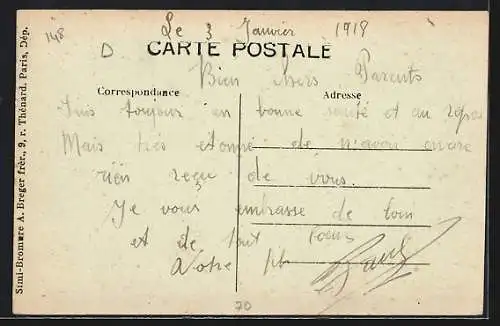 148
Le 3 Janvier 1918
D
CARTE POSTALE
Bien chers Parents
Correspondance
Adresse
Suis toujour en bonne santé et au repos
Mais très étonné de n'avoir encore
rien reçu de vous.
Je vous embrasse de loin
et de tout coeur
Votre
70
Simi-Bromure A. Breger frèr., 9, r. Thénard, Paris, Dép.